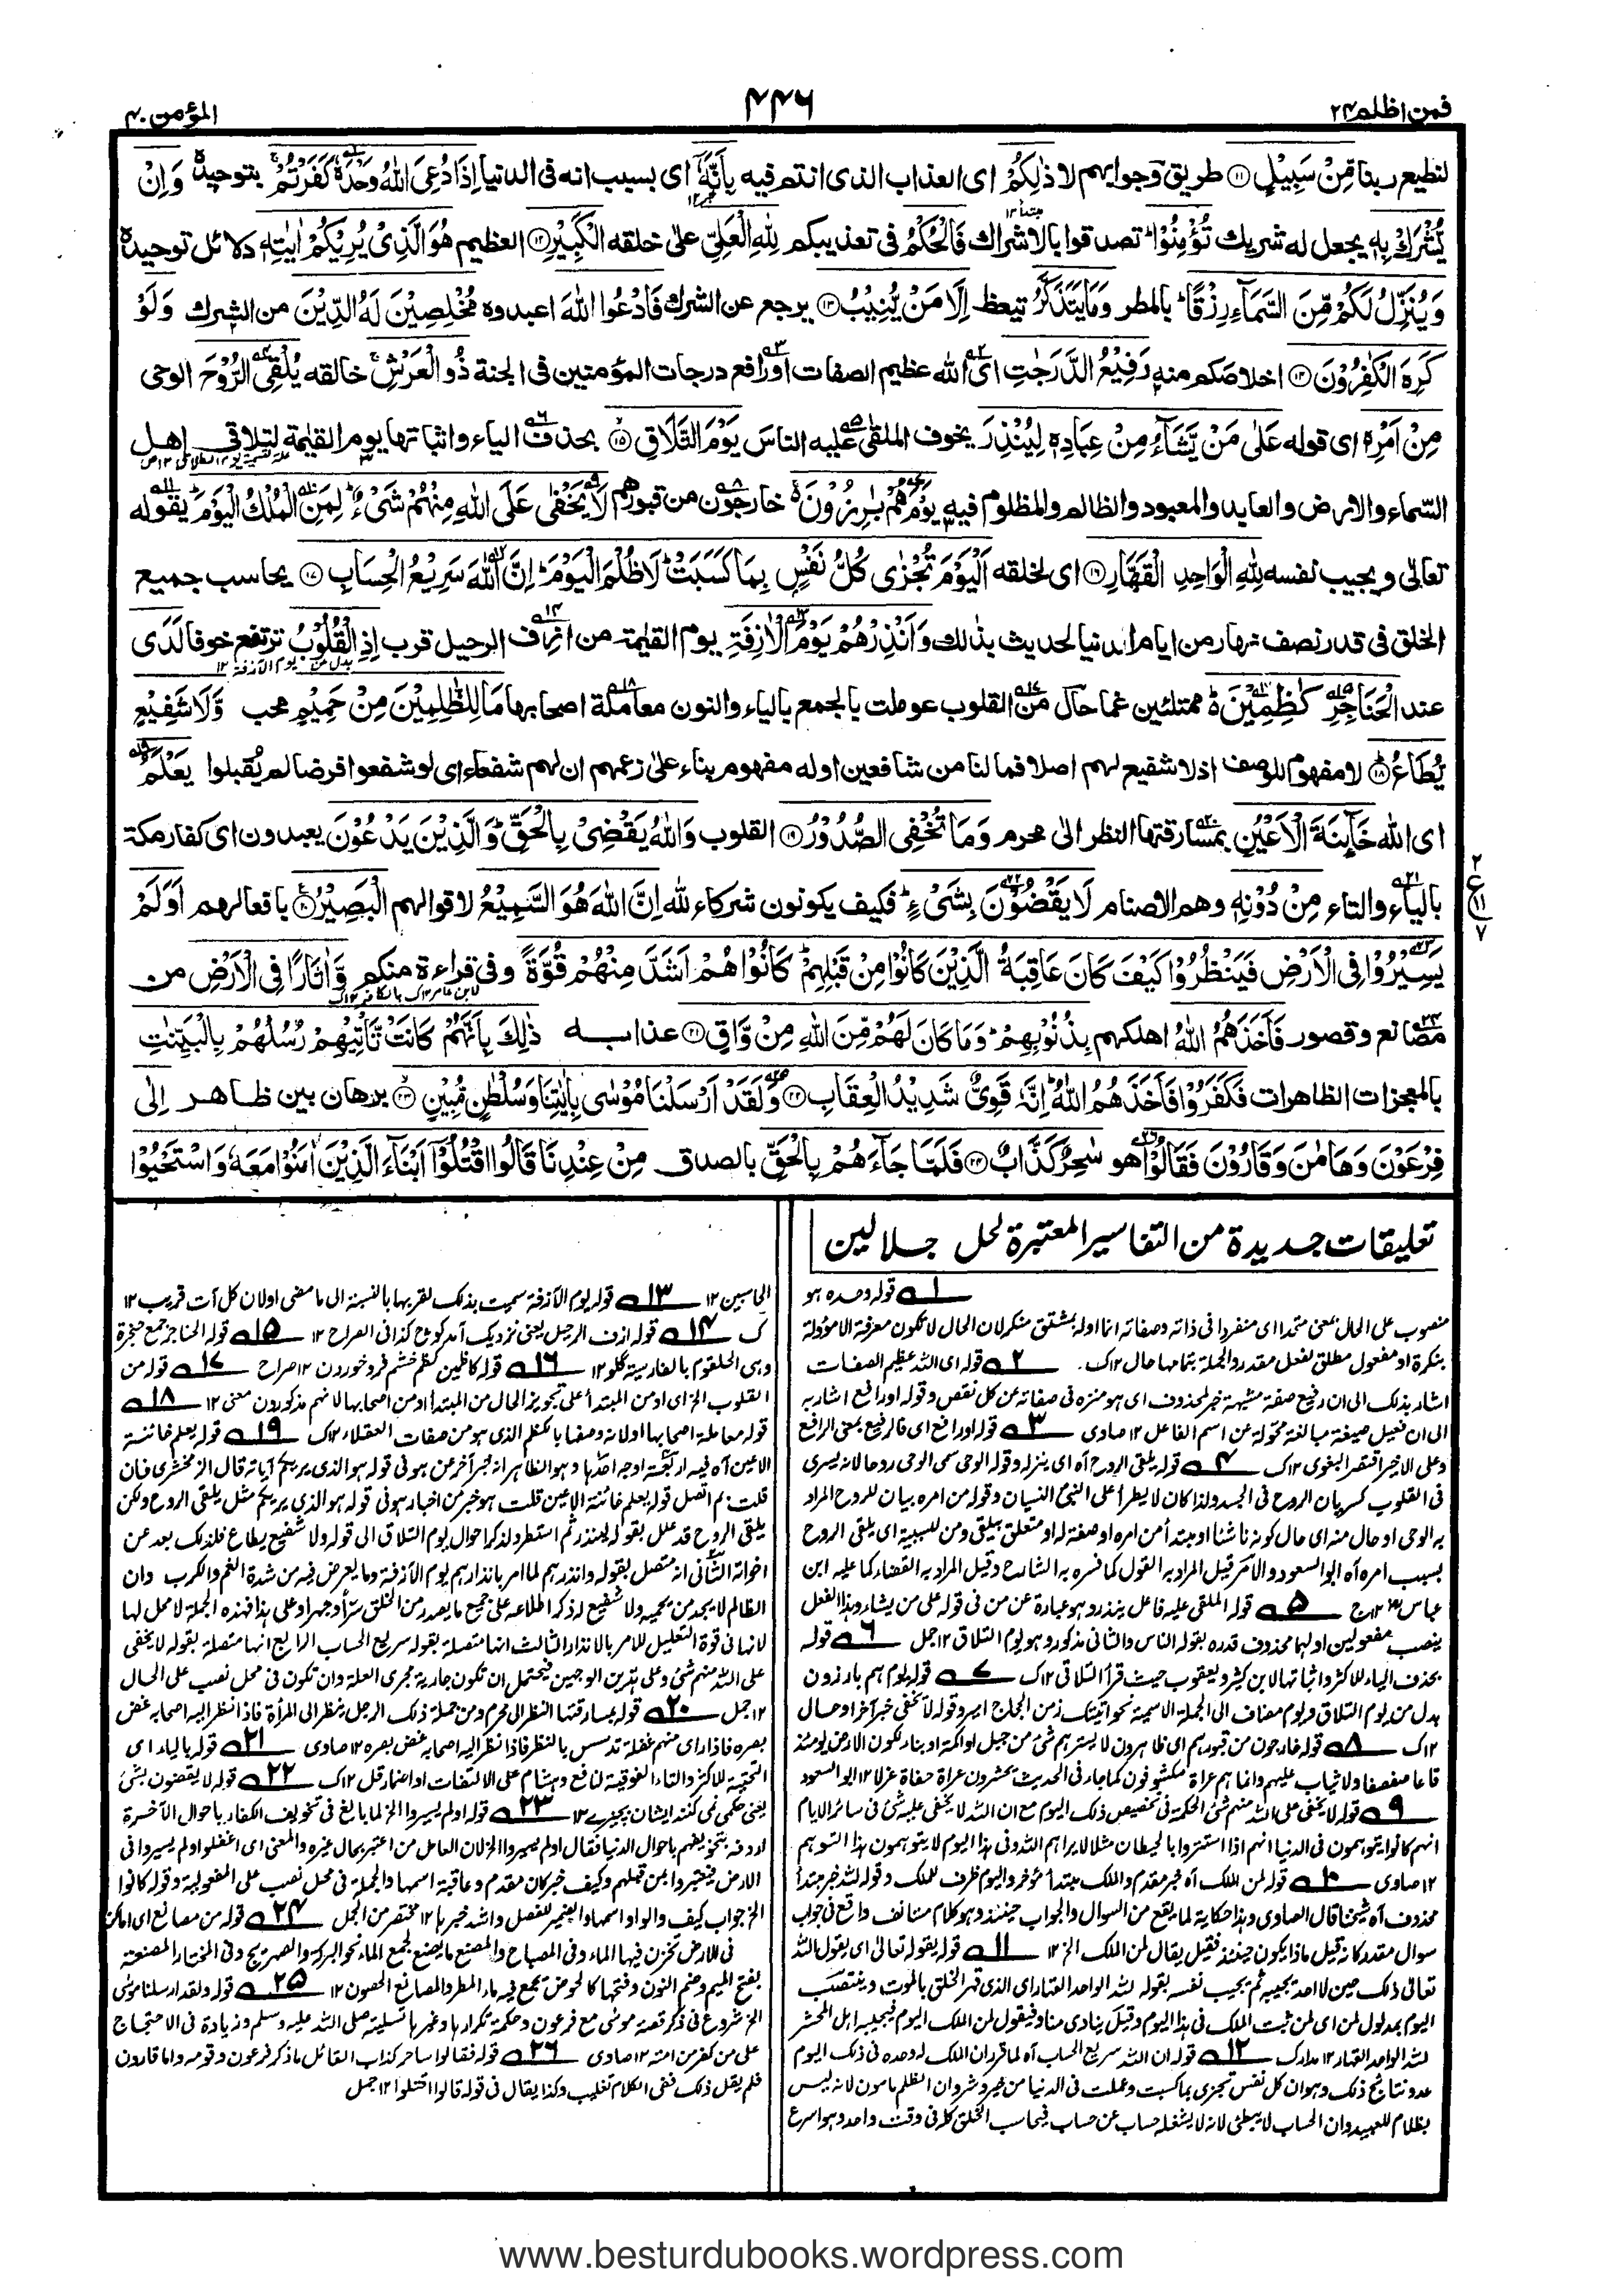 فمن اظلم ٢٤
٤٤٦
المؤمن ٤٠
لنطيع ربنا مِّنْ سَبِيْلٍ ⑪ طريق وجوابهم لا ذٰلِكُمْ اى العذاب الذى انتم فيه بِاَنَّهٗ اى بسبب انه فى الدنيا اِذَا دُعِىَ اللّٰهُ وَحْدَهٗ كَفَرْتُمْ بتوحيده وَاِنْ
يُّشْرَكْ بِهٖ يجعل له شريك تُؤْمِنُوْا تصدقوا بالاشراك فَالْحُكْمُ فى تعذيبكم لِلّٰهِ الْعَلِىِّ على خلقه الْكَبِيْرِ ⑫ العظيم هُوَ الَّذِىْ يُرِيْكُمْ اٰيٰتِهٖ دلائل توحيده
وَيُنَزِّلُ لَكُمْ مِّنَ السَّمَآءِ رِزْقًا بالمطر وَمَا يَتَذَكَّرُ يتعظ اِلَّا مَنْ يُّنِيْبُ ⑬ يرجع عن الشرك فَادْعُوا اللّٰهَ اعبدوه مُخْلِصِيْنَ لَهُ الدِّيْنَ من الشرك وَلَوْ
كَرِهَ الْكٰفِرُوْنَ ⑭ اخلاصكم منه رَفِيْعُ الدَّرَجٰتِ اى الله عظيم الصفات او رافع درجات المؤمنين فى الجنة ذُو الْعَرْشِ خالقه يُلْقِى الرُّوْحَ الوحى
مِنْ اَمْرِهٖ اى قوله عَلٰى مَنْ يَّشَآءُ مِنْ عِبَادِهٖ لِيُنْذِرَ يخوف الملقى عليه الناس يَوْمَ التَّلَاقِ ⑮ بحذف الياء واثباتها يوم القيٰمة لتلاقى اهل
السماء والارض والعابد والمعبود والظالم والمظلوم فيه يَوْمَ هُمْ بٰرِزُوْنَ خارجون من قبورهم لَا يَخْفٰى عَلَى اللّٰهِ مِنْهُمْ شَىْءٌ لِمَنِ الْمُلْكُ الْيَوْمَ يقوله
تعالى ويجيب نفسه لِلّٰهِ الْوَاحِدِ الْقَهَّارِ ⑯ اى لخلقه اَلْيَوْمَ تُجْزٰى كُلُّ نَفْسٍ بِمَا كَسَبَتْ لَا ظُلْمَ الْيَوْمَ اِنَّ اللّٰهَ سَرِيْعُ الْحِسَابِ ⑰ يحاسب جميع
الخلق فى قدر نصف نهار من ايام الدنيا لحديث بذلك وَاَنْذِرْهُمْ يَوْمَ الْاٰزِفَةِ يوم القيٰمة من ازف الرحيل قرب اِذِ الْقُلُوْبُ ترتفع خوفا لَدَى
عند الْحَنَاجِرِ كٰظِمِيْنَ ممتلئين غما حال من القلوب عوملت بالجمع بالياء والنون معاملة اصحابها مَا لِلظّٰلِمِيْنَ مِنْ حَمِيْمٍ محب وَّلَا شَفِيْعٍ
يُّطَاعُ ⑱ لا مفهوم للوصف اذ لا شفيع لهم اصلا فما لنا من شافعين اوله مفهوم بناء على زعمهم ان لهم شفعاء اى لو شفعوا فرضا لم يقبلوا يَعْلَمُ
اى الله خَآئِنَةَ الْاَعْيُنِ بمسارقتها النظر الى محرم وَمَا تُخْفِى الصُّدُوْرُ ⑲ القلوب وَاللّٰهُ يَقْضِىْ بِالْحَقِّ وَالَّذِيْنَ يَدْعُوْنَ يعبدون اى كفار مكة
بالياء والتاء مِنْ دُوْنِهٖ وهم الاصنام لَا يَقْضُوْنَ بِشَىْءٍ فكيف يكونون شركاء لله اِنَّ اللّٰهَ هُوَ السَّمِيْعُ لاقوالهم الْبَصِيْرُ ⑳ بافعالهم اَوَلَمْ
يَسِيْرُوْا فِى الْاَرْضِ فَيَنْظُرُوْا كَيْفَ كَانَ عَاقِبَةُ الَّذِيْنَ كَانُوْا مِنْ قَبْلِهِمْ كَانُوْا هُمْ اَشَدَّ مِنْهُمْ قُوَّةً وفى قراءة منكم وَّاٰثَارًا فِى الْاَرْضِ من
مصانع وقصور فَاَخَذَهُمُ اللّٰهُ اهلكهم بِذُنُوْبِهِمْ وَمَا كَانَ لَهُمْ مِّنَ اللّٰهِ مِنْ وَّاقٍ ㉑ عذابه ذٰلِكَ بِاَنَّهُمْ كَانَتْ تَّاْتِيْهِمْ رُسُلُهُمْ بِالْبَيِّنٰتِ
بالمعجزات الظاهرات فَكَفَرُوْا فَاَخَذَهُمُ اللّٰهُ اِنَّهٗ قَوِىٌّ شَدِيْدُ الْعِقَابِ ㉒ وَلَقَدْ اَرْسَلْنَا مُوْسٰى بِاٰيٰتِنَا وَسُلْطٰنٍ مُّبِيْنٍ ㉓ برهان بين ظاهر اِلٰى
فِرْعَوْنَ وَهَامٰنَ وَقَارُوْنَ فَقَالُوْا هو سٰحِرٌ كَذَّابٌ ㉔ فَلَمَّا جَآءَهُمْ بِالْحَقِّ بالصدق مِنْ عِنْدِنَا قَالُوا اقْتُلُوْٓا اَبْنَآءَ الَّذِيْنَ اٰمَنُوْا مَعَهٗ وَاسْتَحْيُوْا
تعليقات جديدة من التفاسير المعتبرة لحل جلالين
١ قوله وحده هو
منصوب على الحال بمعنى متحدا اى منفردا فى ذاته وصفاته انما اوله بمشتق منكر لان الحال لا تكون معرفة الا مؤولة
بنكرة او مفعول مطلق لفعل مقدر والجملة بتمامها حال ١٢ك. ٢ قوله اى الله عظيم الصفات
اشار بذلك الى ان رفيع صفة مشبهة خبر لمحذوف اى هو منزه فى صفاته عن كل نقص وقوله او رافع اشار به
الى ان فعيل صيغة مبالغة محولة عن اسم الفاعل ١٢ صاوى ٣ قوله او رافع اى فالرفيع بمعنى الرافع
وعلى الاخير اقتصر البغوى ١٢ك ٤ قوله يلقى الروح آه اى ينزله وقوله الوحى سمى الوحى روحا لانه يسرى
فى القلوب كسريان الروح فى الجسد ولذا كان لا يطرأ على النبى النسيان وقوله من امره بيان للروح المراد
به الوحى او حال منه اى حال كونه ناشئا ومبتدأ من امره او صفة له او متعلق بيلقى ومن للسببية اى يلقى الروح
بسبب امره آه ابو السعود والامر قيل المراد به القول كما فسره به الشارح وقيل المراد به القضاء كما عليه ابن
عباس ١٢ج ٥ قوله الملقى عليه فاعل ينذر وهو عبارة عن من فى قوله على من يشاء وهذا الفعل
ينصب مفعولين اولهما محذوف قدره بقوله الناس والثانى مذكور وهو يوم التلاق ١٢ جمل ٦ قوله
بحذف الياء للاكثر واثباتها لابن كثير ويعقوب حيث قرأ التلاقى ١٢ك ٧ قوله يوم هم بارزون
بدل من يوم التلاق ويوم مضاف الى الجملة الاسمية نحو اتيتك زمن الحجاج امير وقوله لا يخفى خبر آخر او حال
١٢ك ٨ قوله خارجون من قبورهم اى ظاهرون لا يسترهم شئ من جبل او اكمة او بناء لكون الارض يومئذ
قاعا صفصفا ولا ثياب عليهم وانما هم عراة مكشوفون كما جاء فى الحديث يحشرون عراة حفاة غرلا ١٢ ابو السعود
٩ قوله لا يخفى على الله منهم شئ الحكمة فى تخصيص ذلك اليوم مع ان الله لا يخفى عليه شئ فى سائر الايام
انهم كانوا يتوهمون فى الدنيا انهم اذا استتروا بالحيطان مثلا لا يراهم الله وفى هذا اليوم لا يتوهمون هذا التوهم
١٢ صاوى ١٠ قوله لمن الملك آه خبر مقدم والملك مبتدأ مؤخر واليوم ظرف للملك وقوله لله خبر مبتدأ
محذوف آه شيخنا قال الصاوى وهذا حكاية لما يقع من السوال والجواب حينئذ وهو كلام مستانف واقع فى جواب
سوال مقدر كانه قيل ماذا يكون حينئذ فقيل يقال لمن الملك الخ ١٢ ١١ قوله يقوله تعالى اى يقول الله
تعالى ذلك حين لا احد يجيبه ثم يجيب نفسه بقوله لله الواحد القهار اى الذى قهر الخلق بالموت وينتصب
اليوم بمدلول لمن اى لمن ثبت الملك فى هذا اليوم وقيل ينادى مناد فيقول لمن الملك اليوم فيجيبه اهل المحشر
لله الواحد القهار ١٢ مدارك ١٢ قوله ان الله سريع الحساب آه لما قرر ان الملك له وحده فى ذلك اليوم
عدد نتائج ذلك وهو ان كل نفس تجزى بما كسبت وعملت فى الدنيا من خير وشر وان الظلم مامون لانه ليس
بظلام للعبيد وان الحساب لا يبطئ لانه لا يشغله حساب عن حساب فيحاسب الخلق كله فى وقت واحد وهو اسرع
الحاسبين ١٢ ١٣ قوله يوم الآزفة سميت بذلك لقربها بالنسبة الى ما مضى او لان كل آت قريب ١٢
ك ١٤ قوله ازف الرحيل يعنى نزديك آمد كوچ كذا فى الصراح ١٢ ١٥ قوله الحناجر جمع حنجرة
وهى الحلقوم بالفارسية گلو ١٢ ١٦ قوله كاظمين كظم خشم فرو خوردن ١٢ صراح ١٧ قوله من
القلوب الخ اى او من المبتدأ على تجويز الحال من المبتدأ او من اصحابها لانهم مذكورون معنى ١٢ ١٨
قوله معاملة اصحابها اولانه وصفها بالكظم الذى هو من صفات العقلاء ١٢ك ١٩ قوله يعلم خائنة
الاعين آه فيه اربعة اوجه احدها وهو الظاهر انه خبر آخر عن هو فى قوله هو الذى يريكم آياته قال الزمخشرى فان
قلت بم اتصل قوله يعلم خائنة الاعين قلت هو خبر من اخبار هو فى قوله هو الذى يريكم مثل يلقى الروح ولكن
يلقى الروح قد علل بقوله لينذر ثم استطرد لذكر احوال يوم التلاق الى قوله ولا شفيع يطاع فلذلك بعد عن
اخواته الثانى انه متصل بقوله وانذرهم لما امر بانذارهم يوم الآزفة وما يعرض فيه من شدة الغم والكرب وان
الظالم لا يجد من يحميه ولا شفيع له ذكر اطلاعه على جميع ما يصدر من الخلق سرا وجهرا وعلى هذا فهذه الجملة لا محل لها
لانها فى قوة التعليل للامر بالانذار الثالث انها متصلة بقوله سريع الحساب الرابع انها متصلة بقوله لا يخفى
على الله منهم شئ وعلى هذين الوجهين فيحتمل ان تكون جارية مجرى العلة وان تكون فى محل نصب على الحال
١٢ جمل ٢٠ قوله بمسارقتها النظر الى محرم ومن جملة ذلك الرجل ينظر الى المرأة فاذا نظر اليه اصحابه غض
بصره فاذا راى منهم غفلة تدسس بالنظر فاذا نظر اليه اصحابه غض بصره ١٢ صاوى ٢١ قوله بالياء اى
التحتية للاكثر والتاء الفوقية لنافع وهشام على الالتفات او اضمار قل ١٢ك ٢٢ قوله لا يقضون بشئ
يعنى حكمى نمى كنند ايشان بچيزے ١٢ ٢٣ قوله اولم يسيروا الخ لما بالغ فى تخويف الكفار باحوال الآخرة
اردفه بتخويفهم باحوال الدنيا فقال اولم يسيروا الخ لان العاقل من اعتبر بحال غيره والمعنى اى اغفلوا ولم يسيروا فى
الارض فيعتبروا بمن قبلهم وكيف خبر كان مقدم وعاقبة اسمها والجملة فى محل نصب على المفعولية وقوله كانوا
الخ جواب كيف والواو اسمها والضمير للفصل واشد خبرها ١٢ مختصر من الجمل ٢٤ قوله من مصانع اى اماكن
فى الارض تخزن فيها الماء وفى المصباح والمصنع ما يصنع لجمع الماء نحو البركة والصهريج وفى المختار المصنعة
بفتح الميم وضم النون وفتحها كالحوض يجمع فيه ماء المطر والمصانع الحصون ١٢ ٢٥ قوله ولقد ارسلنا موسى
الخ شروع فى ذكر قصة موسى مع فرعون وحكمة تكرارها وغيرها تسليته صلى الله عليه وسلم وزيادة فى الاحتجاج
على من كفر من امته ١٢ صاوى ٢٦ قوله فقالوا ساحر كذاب القائل ما ذكر فرعون وقومه واما قارون
فلم يقل ذلك ففى الكلام تغليب وكذا يقال فى قوله قالوا اقتلوا ١٢ جمل
www.besturdubooks.wordpress.com